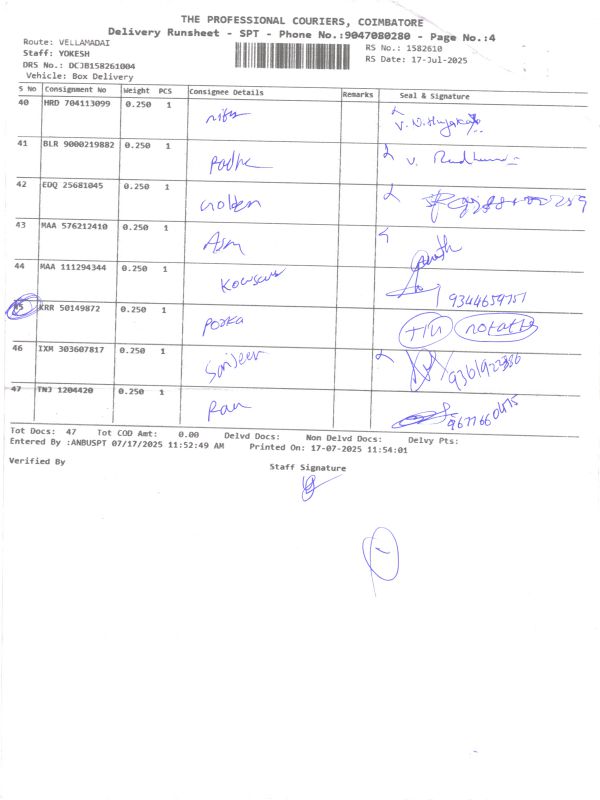 THE PROFESSIONAL COURIERS, COIMBATORE
Delivery Runsheet - SPT - Phone No.:9047080280 - Page No.:4
Route: VELLAMADAI
RS No.: 1582610
Staff: YOKESH
RS Date: 17-Jul-2025
DRS No.: DCJB158261004
Vehicle: Box Delivery
S No Consignment No Weight PCS Consignee Details Remarks Seal & Signature
40 HRD 704113099 0.250 1
41 BLR 9000219882 0.250 1 Radhe V.
42 EDQ 25681045 0.250 1 Golden
43 MAA 576212410 0.250 1
44 MAA 111294344 0.250 1 9344659751
45 KRR 50149872 0.250 1
46 IXM 303607817 0.250 1 Sanjeev
47 TNJ 1204420 0.250 1 Ram
Tot Docs: 47 Tot COD Amt: 0.00 Delvd Docs: Non Delvd Docs: Delvy Pts:
Entered By :ANBUSPT 07/17/2025 11:52:49 AM Printed On: 17-07-2025 11:54:01
Verified By
Staff Signature